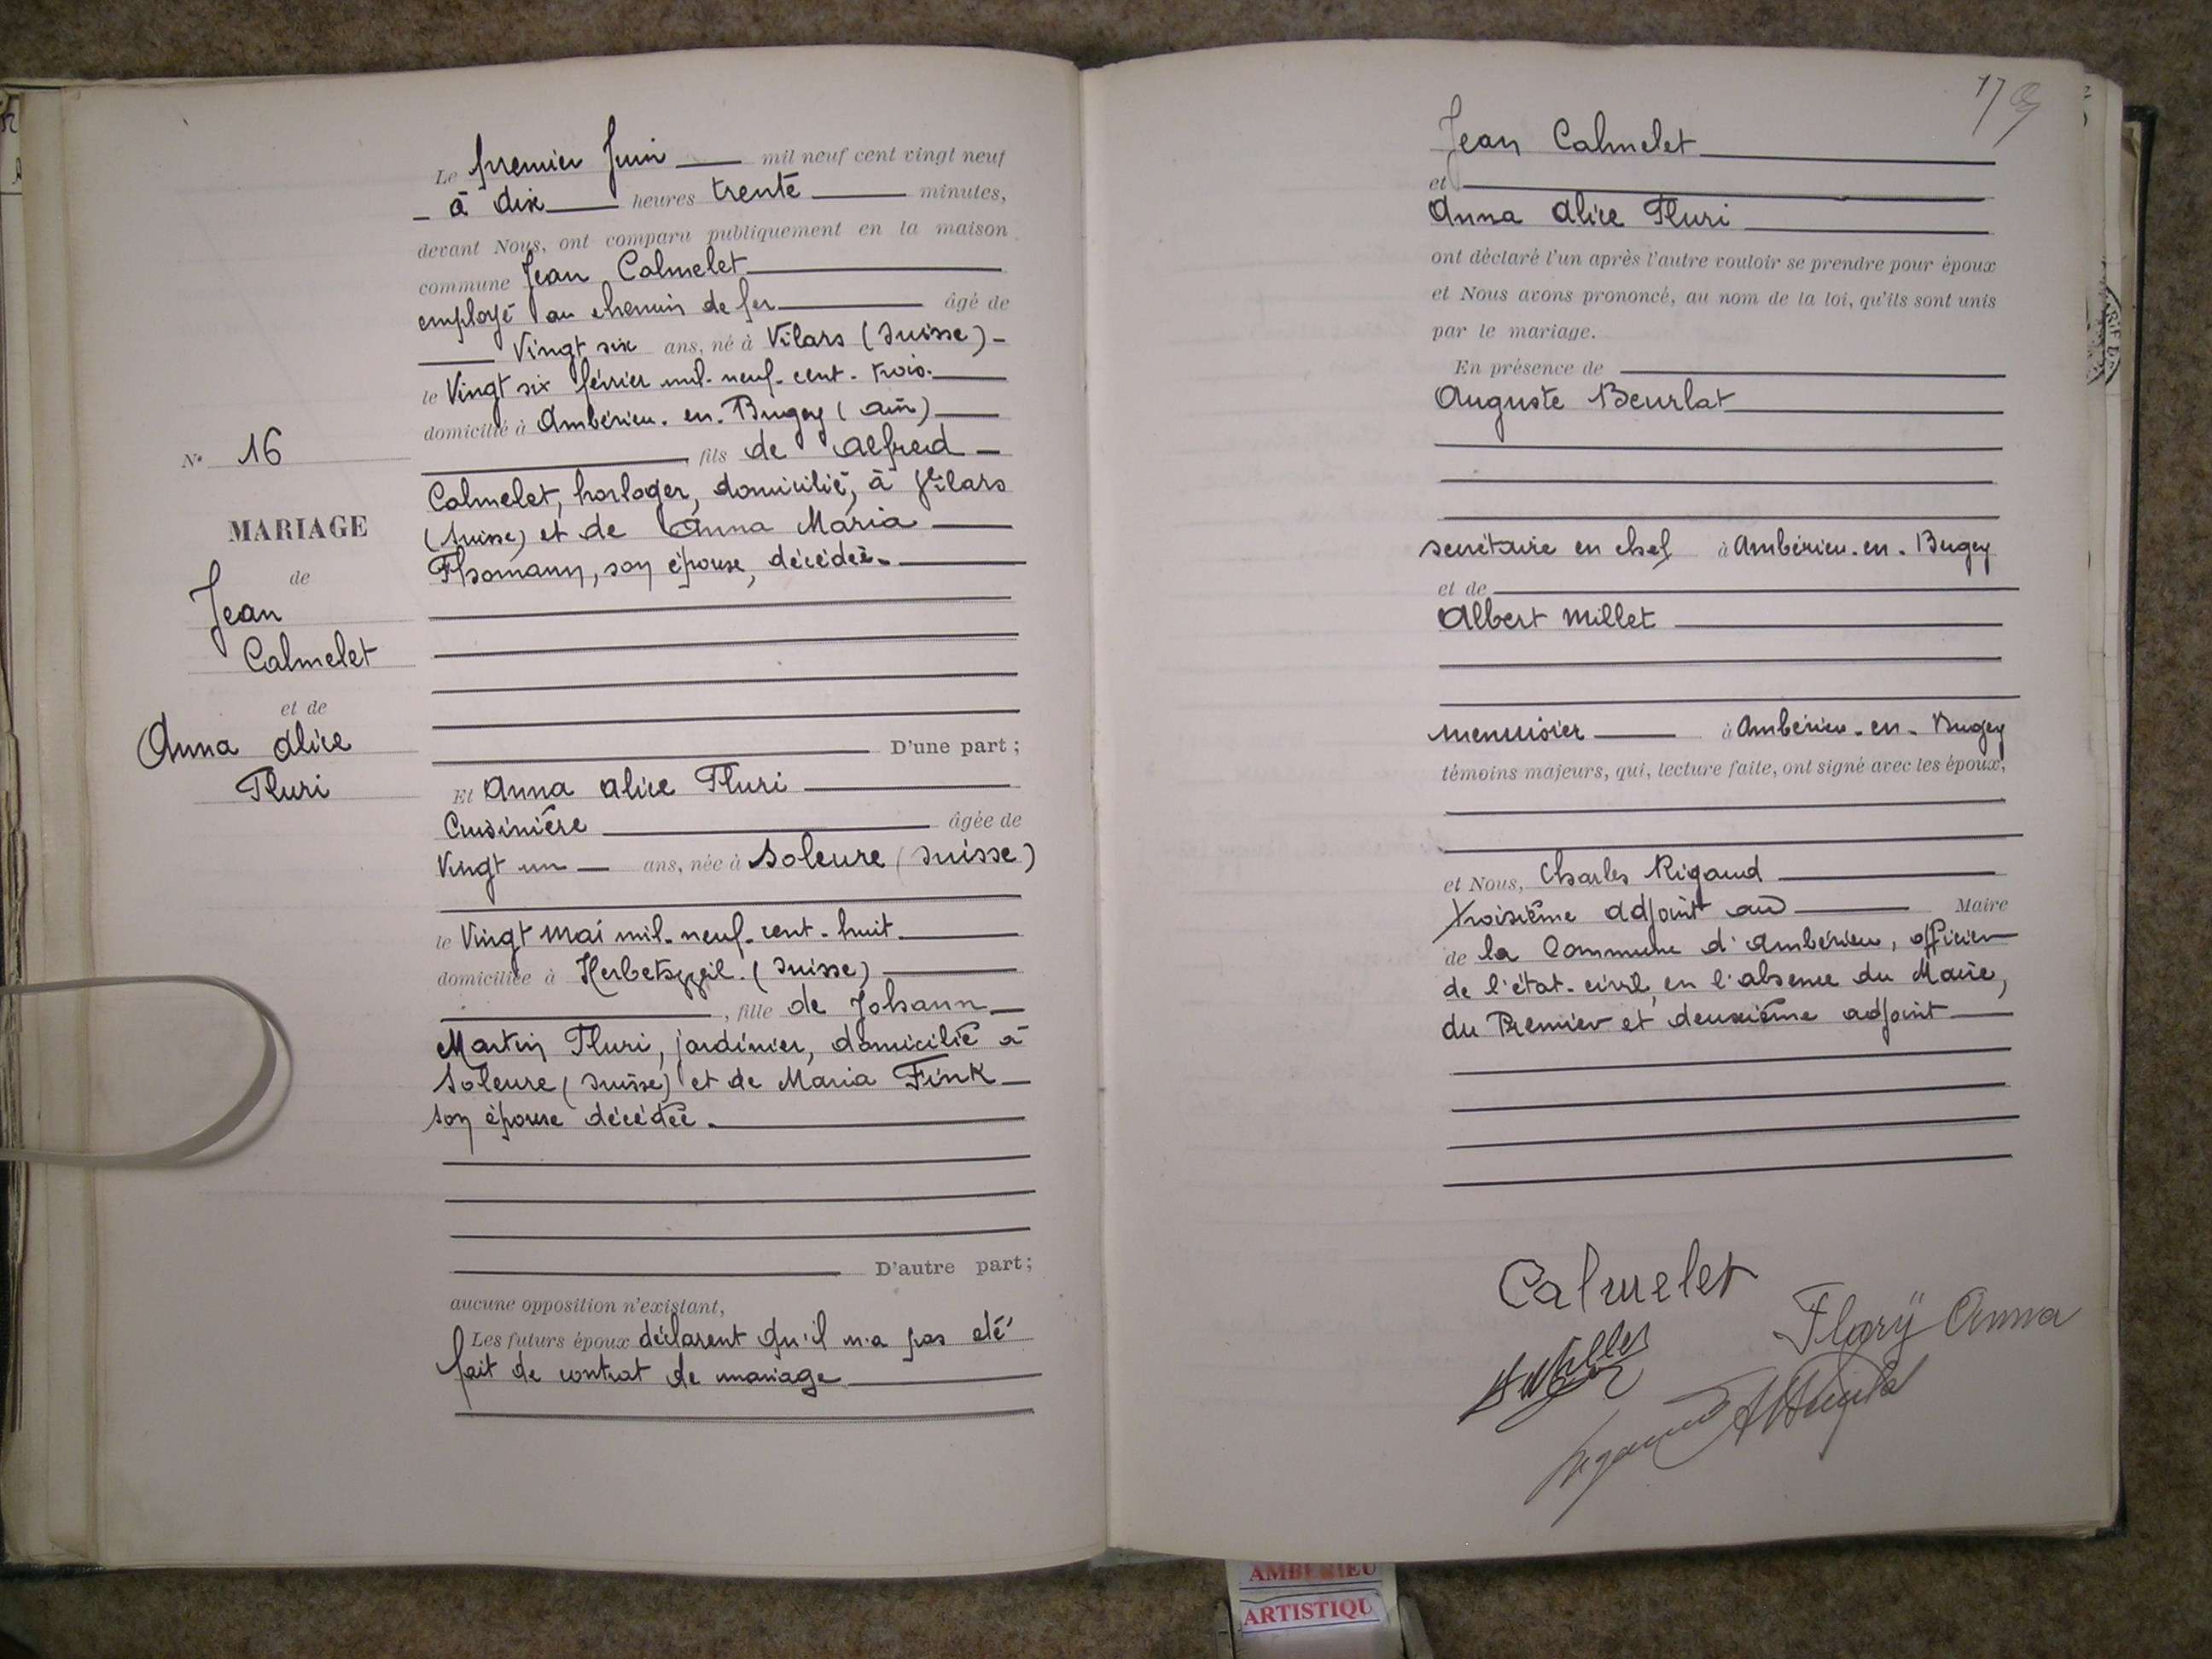 Le premier Juin mil neuf cent vingt neuf
à dix heures trente minutes,
devant Nous, ont comparu publiquement en la maison
commune Jean Calmelet
employé au chemin de fer âgé de
Vingt six ans, né à Vilars (Suisse)
le Vingt six février mil-neuf-cent-trois.
domicilié à Ambérieu-en-Bugey (Ain)
fils de Alfred
Calmelet, horloger, domicilié, à Vilars
(Suisse) et de Anna Maria
Flsomann, son épouse, décédée.
D'une part;
N° 16
MARIAGE
de
Jean
Calmelet
et de
Anna Alice
Fluri
Et Anna Alice Fluri
Cuisinière âgée de
Vingt un ans, née à Soleure (Suisse)
le Vingt Mai mil-neuf-cent-huit
domiciliée à (Suisse)
, fille de Johann
Martin Fluri, jardinier, domicilié à
Soleure (Suisse) et de Maria Fink
son épouse décédée.
D'autre part;
aucune opposition n'existant,
Les futurs époux déclarent qu'il n'a pas été
fait de contrat de mariage
Jean Calmelet
et
Anna Alice Fluri
ont déclaré l'un après l'autre vouloir se prendre pour époux
et Nous avons prononcé, au nom de la loi, qu'ils sont unis
par le mariage.
En présence de
Auguste Beurlat
secrétaire en chef à Ambérieu-en-Bugey
et de
Albert Millet
menuisier à Ambérieu-en-Bugey
témoins majeurs, qui, lecture faite, ont signé avec les époux,
et Nous, Charles Rigaud
troisième adjoint au Maire
de la Commune d'Ambérieu, officier
de l'état-civil, en l'absence du Maire,
du Premier et deuxième adjoint
Calmelet
Flury Anna
AMBERIEU
ARTISTIQU